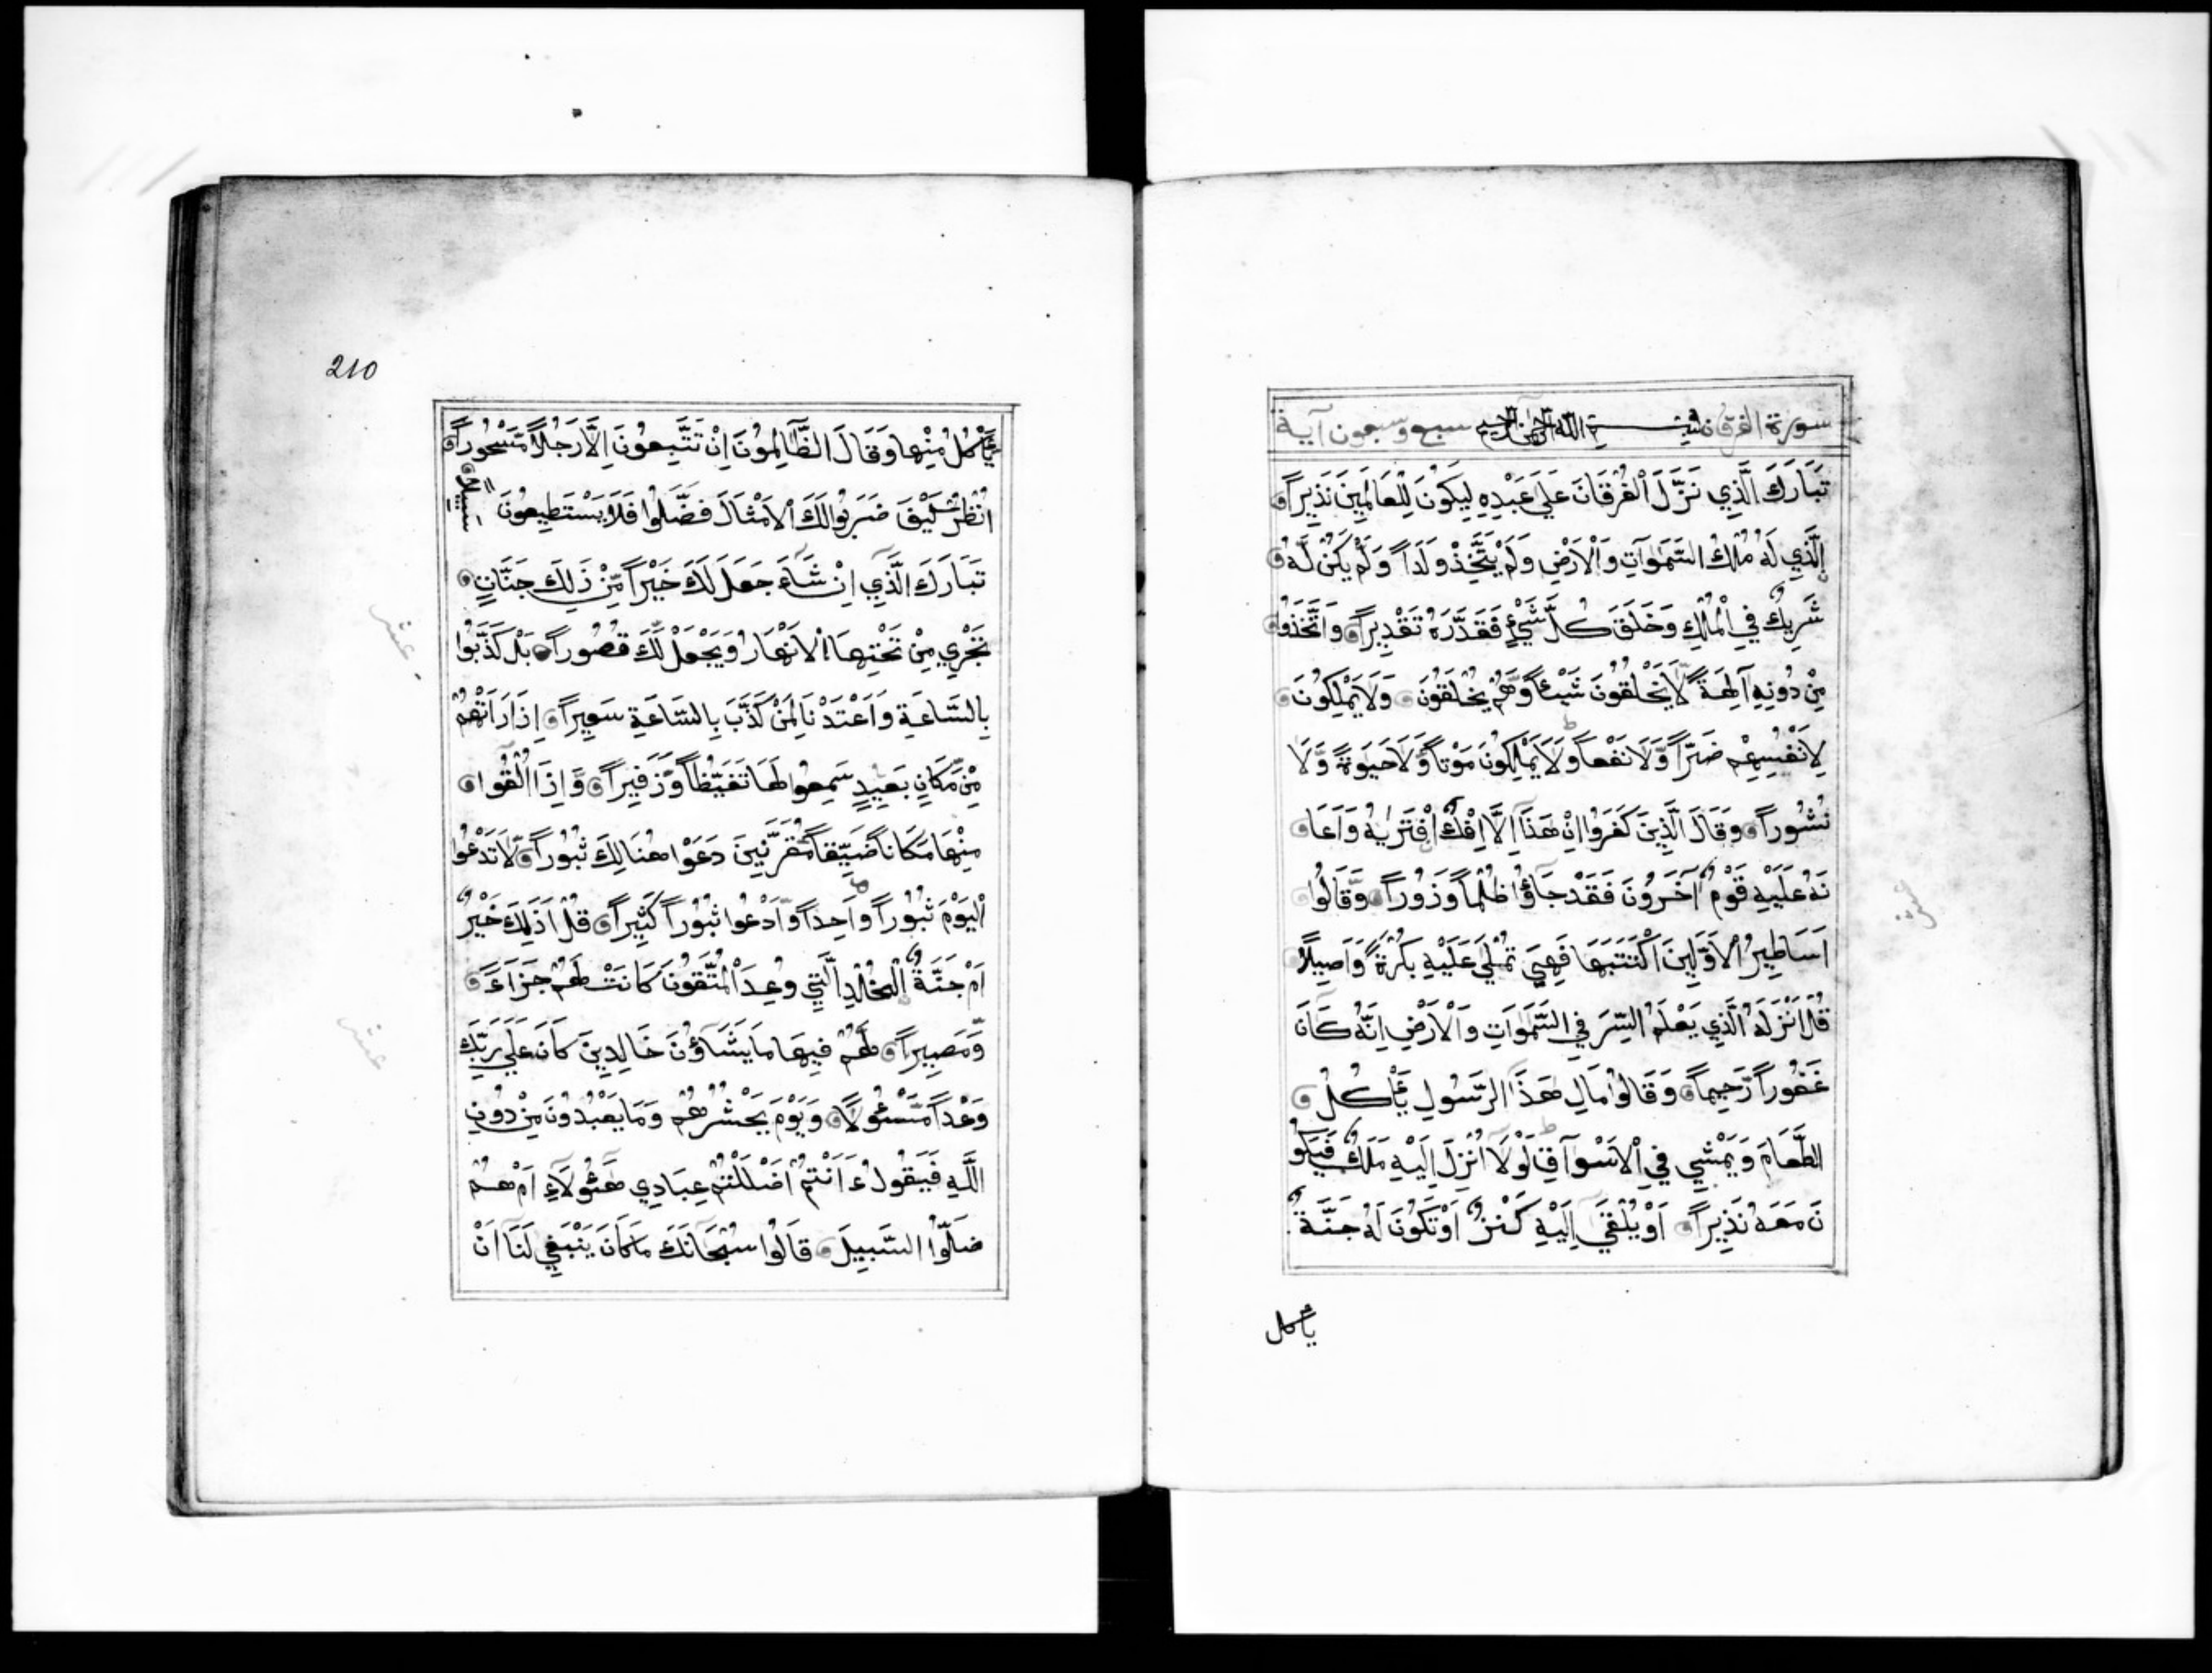 سورة الفرقان بسم الله الرحمن الرحيم سبع وسبعون آية
تَبَارَكَ الَّذِي نَزَّلَ الْفُرْقَانَ عَلَىٰ عَبْدِهِ لِيَكُونَ لِلْعَالَمِينَ نَذِيراً
الَّذِي لَهُ مُلْكُ السَّمٰوَاتِ وَالْاَرْضِ وَلَمْ يَتَّخِذْ وَلَدَاً وَلَمْ يَكُنْ لَّهُ
شَرِيكٌ فِي الْمُلْكِ وَخَلَقَ كُلَّ شَيْءٍ فَقَدَّرَهُ تَقْدِيراً وَاتَّخَذُوا
مِنْ دُونِهِ آلِهَةً لَّا يَخْلُقُونَ شَيْئاً وَّهُمْ يُخْلَقُونَ وَلَا يَمْلِكُونَ
لِاَنْفُسِهِمْ ضَرّاً وَّلَا نَفْعاً وَّلَا يَمْلِكُونَ مَوْتاً وَّلَا حَيٰوةً وَّلَا
نُشُوراً وَقَالَ الَّذِينَ كَفَرُوا اِنْ هَذَا اِلَّا اِفْكٌ افْتَرٰيهُ وَاَعَا
نَهُ عَلَيْهِ قَوْمٌ آخَرُونَ فَقَدْ جَاؤُا ظُلْماً وَزُوراً وَّقَالُوا
اَسَاطِيرُ الْاَوَّلِينَ اكْتَتَبَهَا فَهِيَ تُمْلَىٰ عَلَيْهِ بُكْرَةً وَاَصِيلاً
قُلْ اَنْزَلَهُ الَّذِي يَعْلَمُ السِّرَّ فِي السَّمٰوَاتِ وَالْاَرْضِ اِنَّهُ كَانَ
غَفُوراً رَّحِيماً وَقَالُوا مَالِ هَذَا الرَّسُولِ يَأْكُلُ
الطَّعَامَ وَيَمْشِي فِي الْاَسْوَاقِ لَوْلَا اُنْزِلَ اِلَيْهِ مَلَكٌ فَيَكُو
نَ مَعَهُ نَذِيراً اَوْ يُلْقَىٰ اِلَيْهِ كَنْزٌ اَوْ تَكُونُ لَهُ جَنَّةٌ
يأكل
210
يَأْكُلُ مِنْهَا وَقَالَ الظَّالِمُونَ اِنْ تَتَّبِعُونَ اِلَّا رَجُلاً مَّسْحُوراً
اُنْظُرْ كَيْفَ ضَرَبُوا لَكَ الْاَمْثَالَ فَضَلُّوا فَلَا يَسْتَطِيعُونَ سَبِيلاً
تَبَارَكَ الَّذِي اِنْ شَاءَ جَعَلَ لَكَ خَيْراً مِّنْ ذَلِكَ جَنَّاتٍ
تَجْرِي مِنْ تَحْتِهَا الْاَنْهَارُ وَيَجْعَلْ لَّكَ قُصُوراً بَلْ كَذَّبُوا
بِالسَّاعَةِ وَاَعْتَدْنَا لِمَنْ كَذَّبَ بِالسَّاعَةِ سَعِيراً اِذَا رَاَتْهُمْ
مِّنْ مَّكَانٍ بَعِيدٍ سَمِعُوا لَهَا تَغَيُّظاً وَّزَفِيراً وَّاِذَا اُلْقُوا
مِنْهَا مَكَاناً ضَيِّقاً مُّقَرَّنِينَ دَعَوْا هُنَالِكَ ثُبُوراً لَّا تَدْعُوا
الْيَوْمَ ثُبُوراً وَاحِداً وَّادْعُوا ثُبُوراً كَثِيراً قُلْ اَذَلِكَ خَيْرٌ
اَمْ جَنَّةُ الْخُلْدِ الَّتِي وُعِدَ الْمُتَّقُونَ كَانَتْ لَهُمْ جَزَاءً
وَّمَصِيراً لَهُمْ فِيهَا مَا يَشَاؤُنَ خَالِدِينَ كَانَ عَلَىٰ رَبِّكَ
وَعْداً مَّسْئُولاً وَيَوْمَ يَحْشُرُهُمْ وَمَا يَعْبُدُونَ مِنْ دُونِ
اللَّهِ فَيَقُولُ ءَاَنْتُمْ اَضْلَلْتُمْ عِبَادِي هَؤُلَاءِ اَمْ هُمْ
ضَلُّوا السَّبِيلَ قَالُوا سُبْحَانَكَ مَا كَانَ يَنْبَغِي لَنَا اَنْ
عشر
عشر